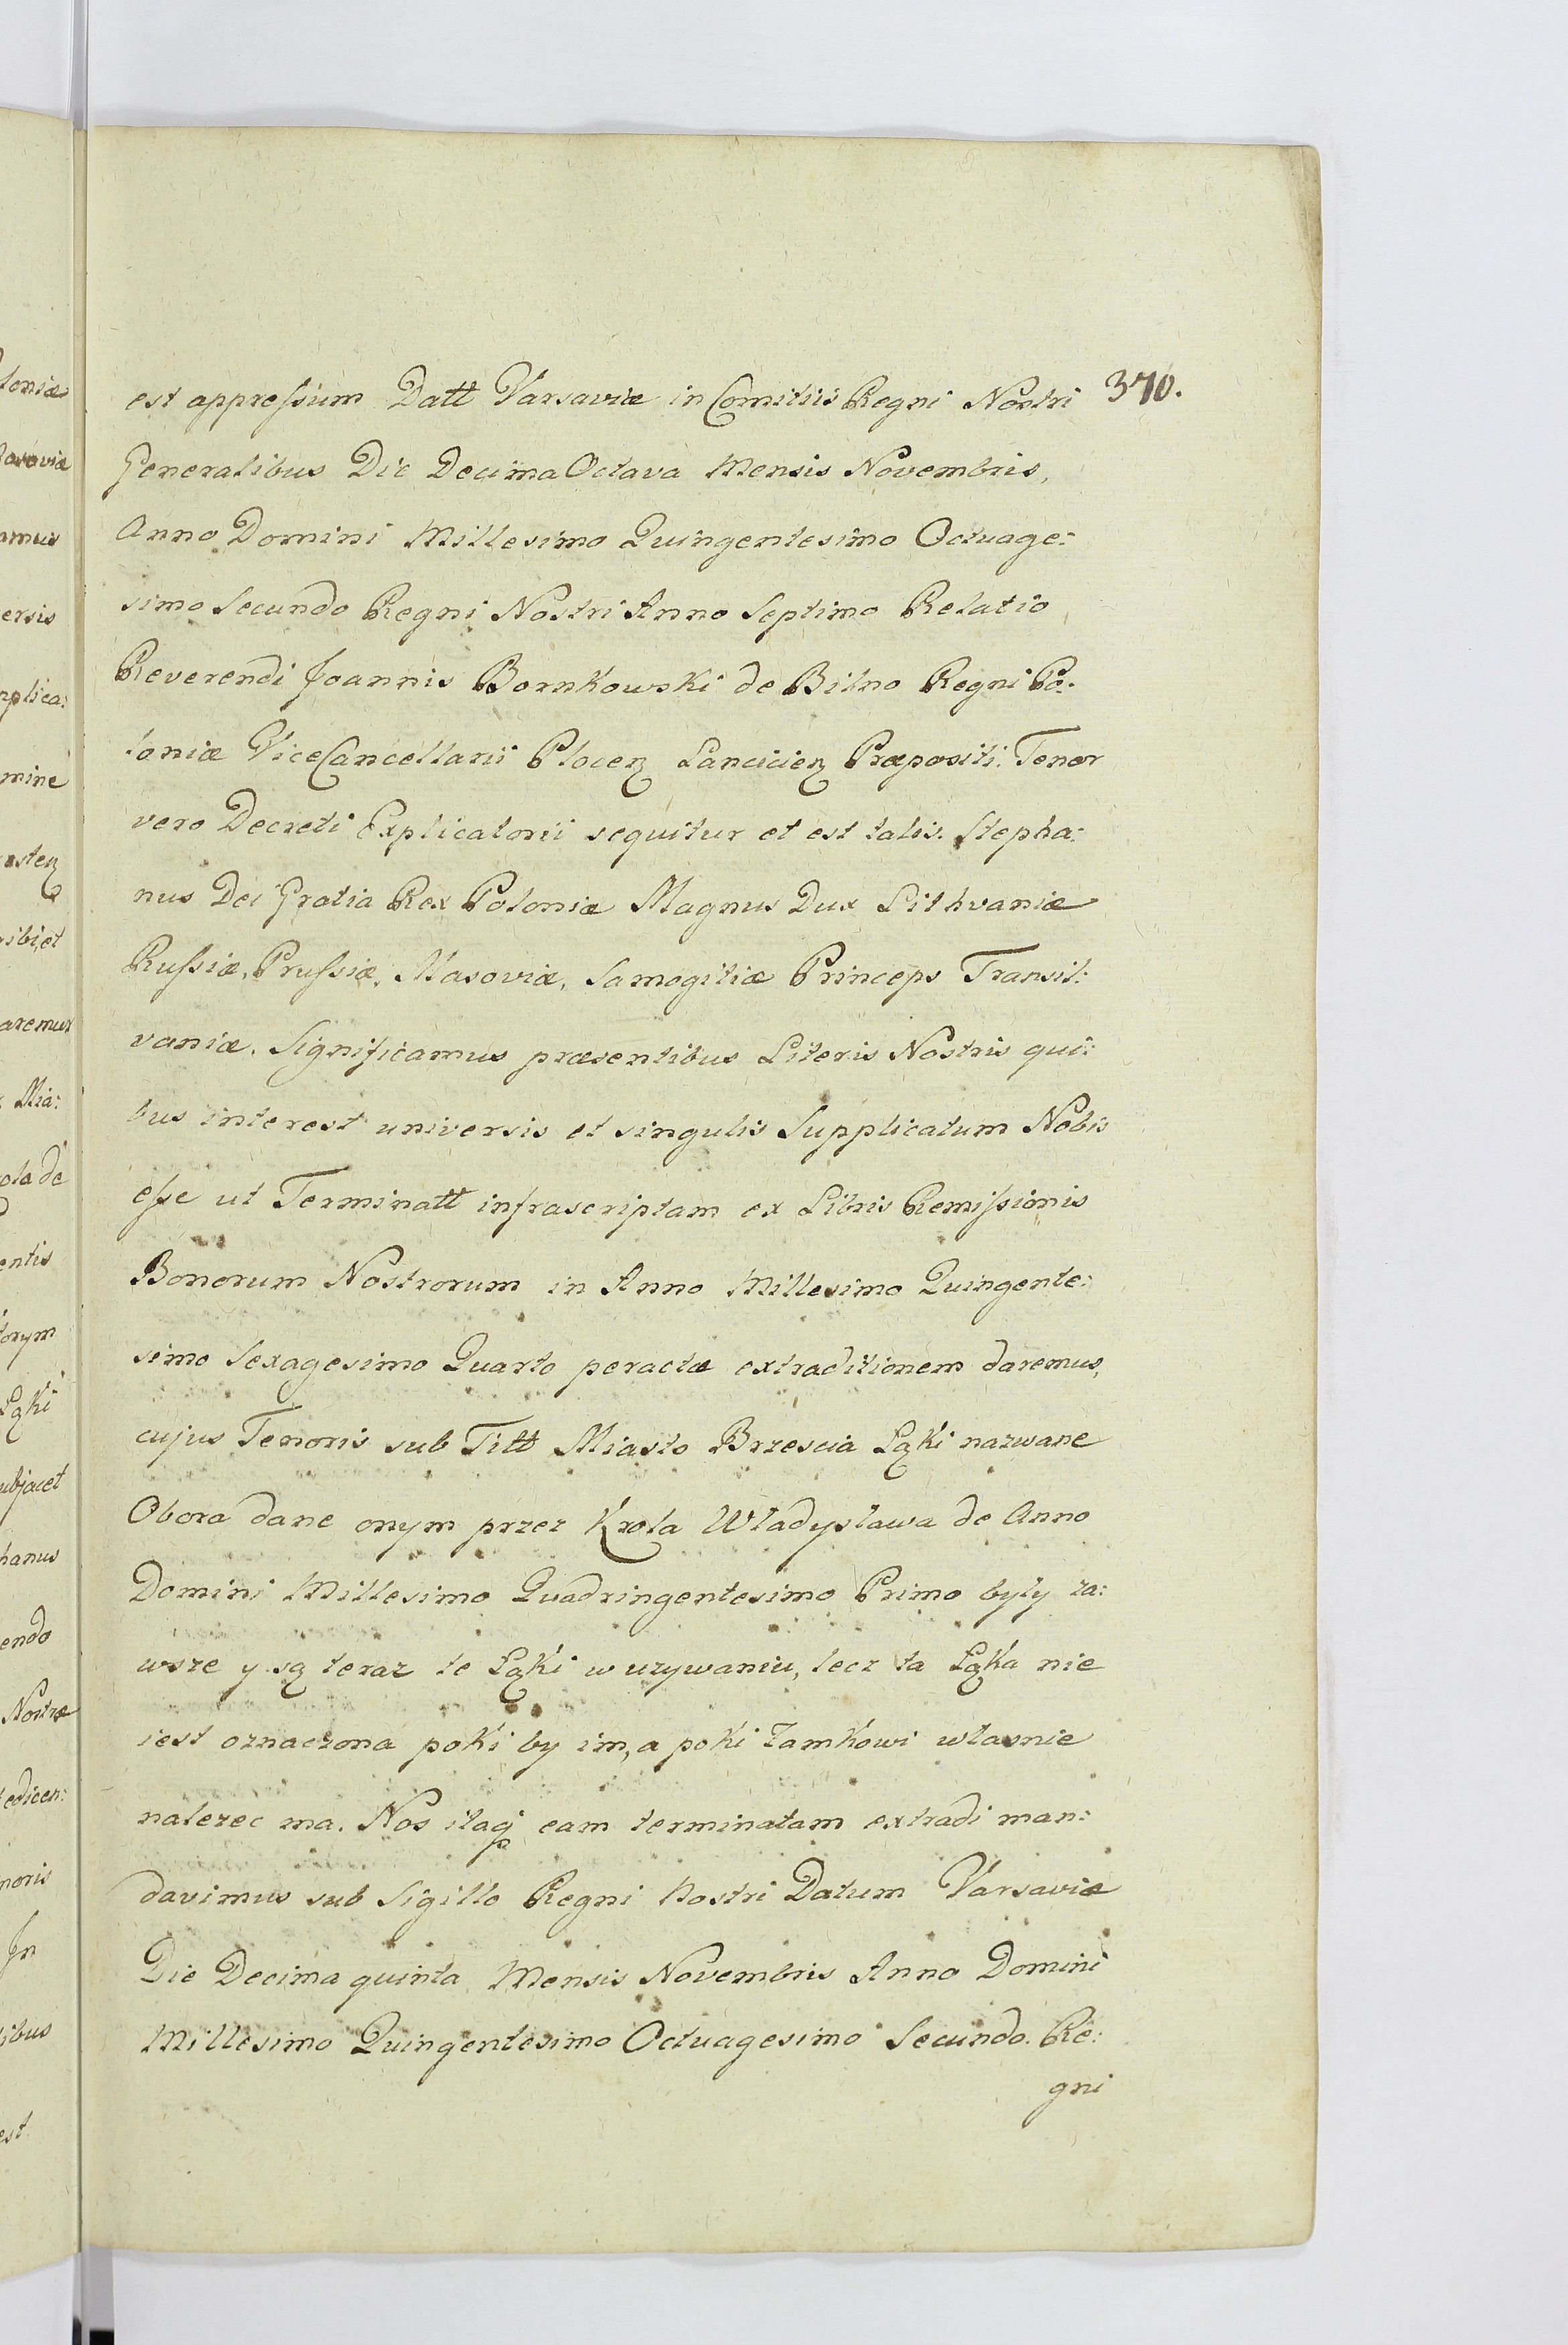 est appreſsum Datt Varsaviæ in Comitiis Regni Nostri 370.
Generalibus Die Decima Octava Mensis Novembris,
Anno Domini Millesimo Quingentesimo Octuage:
simo Secundo Regni Nostri Anno Septimo Relatio
Reverendi Joannis Bornkowski de Bilno Regni Po:
loniæ ViceCancellarii Plocen Lancicien Præpositi. Tenor
vero Decreti Explicatorii sequitur et est talis. Stepha:
nus Dei Gratia Rex Poloniæ Magnus Dux Lithvaniæ
Ruſsiæ, Pruſsiæ, Masoviæ, Samogitiæ Princeps Transil:
vaniæ. Significamus præsentibus Literis Nostris qui:
bus interest universis et singulis Supplicatum Nobis
eſse ut Terminatt infrascriptam ex Libris Remiſsionis
Bonorum Nostrorum in Anno Millesimo Quingente:
simo Sexagesimo Quarto peractæ extraditionem daremus,
cujus Tenoris sub Titt Miasto Brzescia Łąki nazwane
Obora dane onym przez Krola Władysława de Anno
Domini Millesimo Quadringentesimo Primo były za:
wsze y są teraz te Łąki w uzywaniu, lecz ta Łąka nie
iest oznaczona poki by im, a poki Zamkowi własnie
nalezec ma. Nos itaq eam terminatam extradi man:
davimus sub Sigillo Regni Nostri Datum Varsaviæ
Die Decima quinta Mensis Novembris Anno Domini
Millesimo Quingentesimo Octuagesimo Secundo. Re:
gni